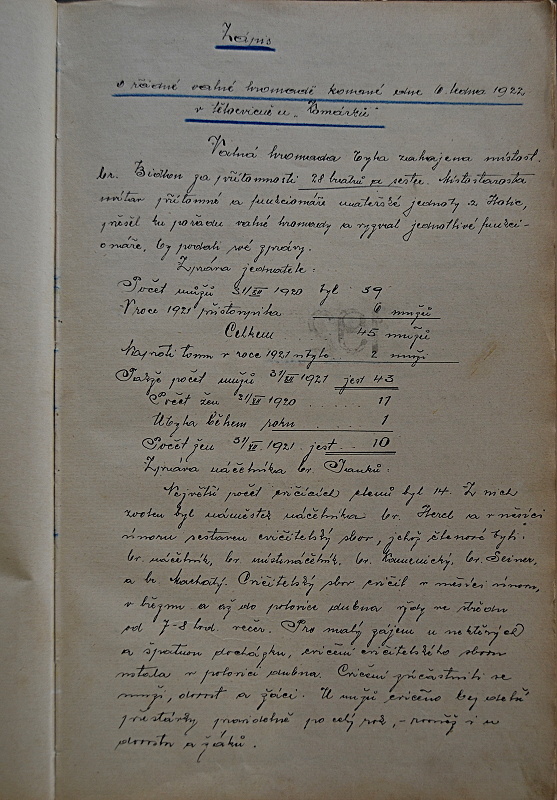 Zápis
o řádné valné hromadě konané dne 6 ledna 1922
v tělocvičně u „Komárků“
Valná hromada byla zahájena místost.
br. za přítomnosti 28 bratrů a sester. Místostarosta
uvítav přítomné a funkcionáře mateřské jednoty z
přešel ku pořadu valné hromady a vyzval jednotlivé funkci-
onáře, by podali své zprávy.
Zpráva jednatele:
Počet mužů 31/XII 1920 byl 39
V roce 1921 přistoupilo 6 mužů
Celkem 45 mužů
Naproti tomu v roce 1921 ubylo 2 muži
Takže počet mužů 31/XII 1921 jest 43
Počet žen 31/XII 1920 ..... 11
Ubyla během roku ..... 1
Počet žen 31/XII. 1921. jest... 10
Zpráva náčelníka br. Janků:
Největší počet cvičících členů byl 14. Z nich
zvolen byl náměstek náčelníka br. Hercl a v měsíci
únoru sestaven cvičitelský sbor, jehož členové byli:
br. náčelník, br. místonáčelník, br. Kamenický, br. Šeiner,
a br. Machatý. Cvičitelský sbor cvičil v měsíci únoru,
v březnu a až do polovice dubna vždy ve středu
od 7-8 hod. večer. Pro malý zájem u některých
a špatnou docházku, cvičení cvičitelského sboru
ustala v polovici dubna. Cvičení zúčastnili se
muži, dorost a žáci. U mužů cvičeno bez
přestávky pravidelně po celý rok, - rovněž i u
dorostu a žáků.